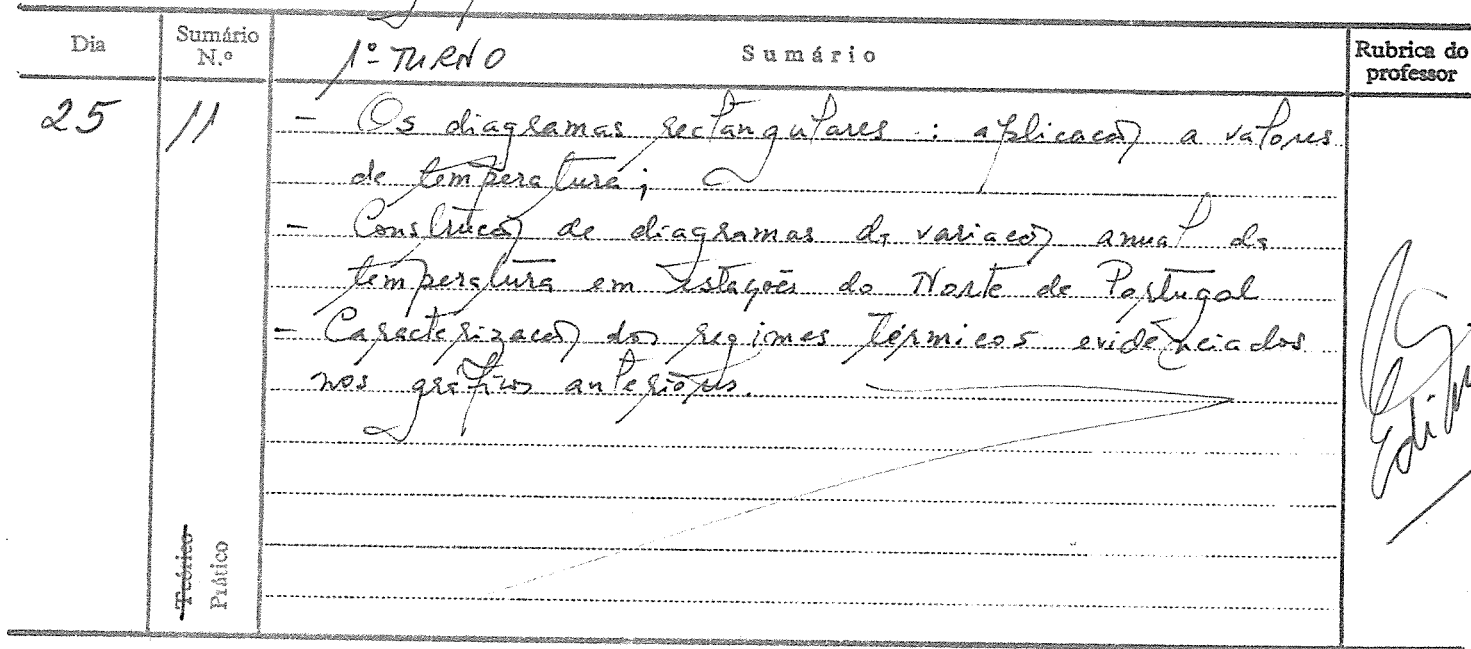 Dia
Sumário N.º
1º TURNO
Sumário
Rubrica do professor
25
11
- Os diagramas rectangulares : aplicação a valores
de temperatura;
- Construção de diagramas da variação anual da
temperatura em Estações do Norte de Portugal
- Caracterização dos regimes térmicos evidenciados
nos gráficos anteriores.
Teórico
Prático